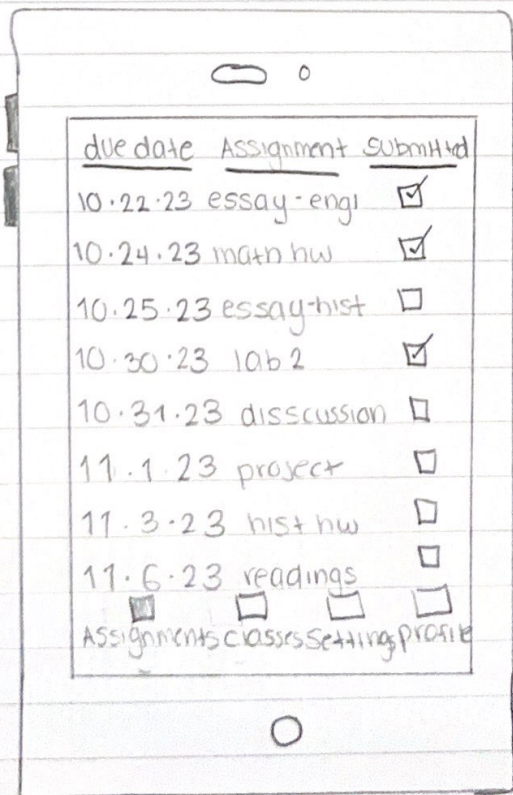 due date Assignment Submitted
10.22.23 essay-engl
10.24.23 math hw
10.25.23 essay-hist
10.30.23 lab 2
10.31.23 disscussion
11.1.23 project
11.3.23 hist hw
11.6.23 readings
Assignments classes Setting profile